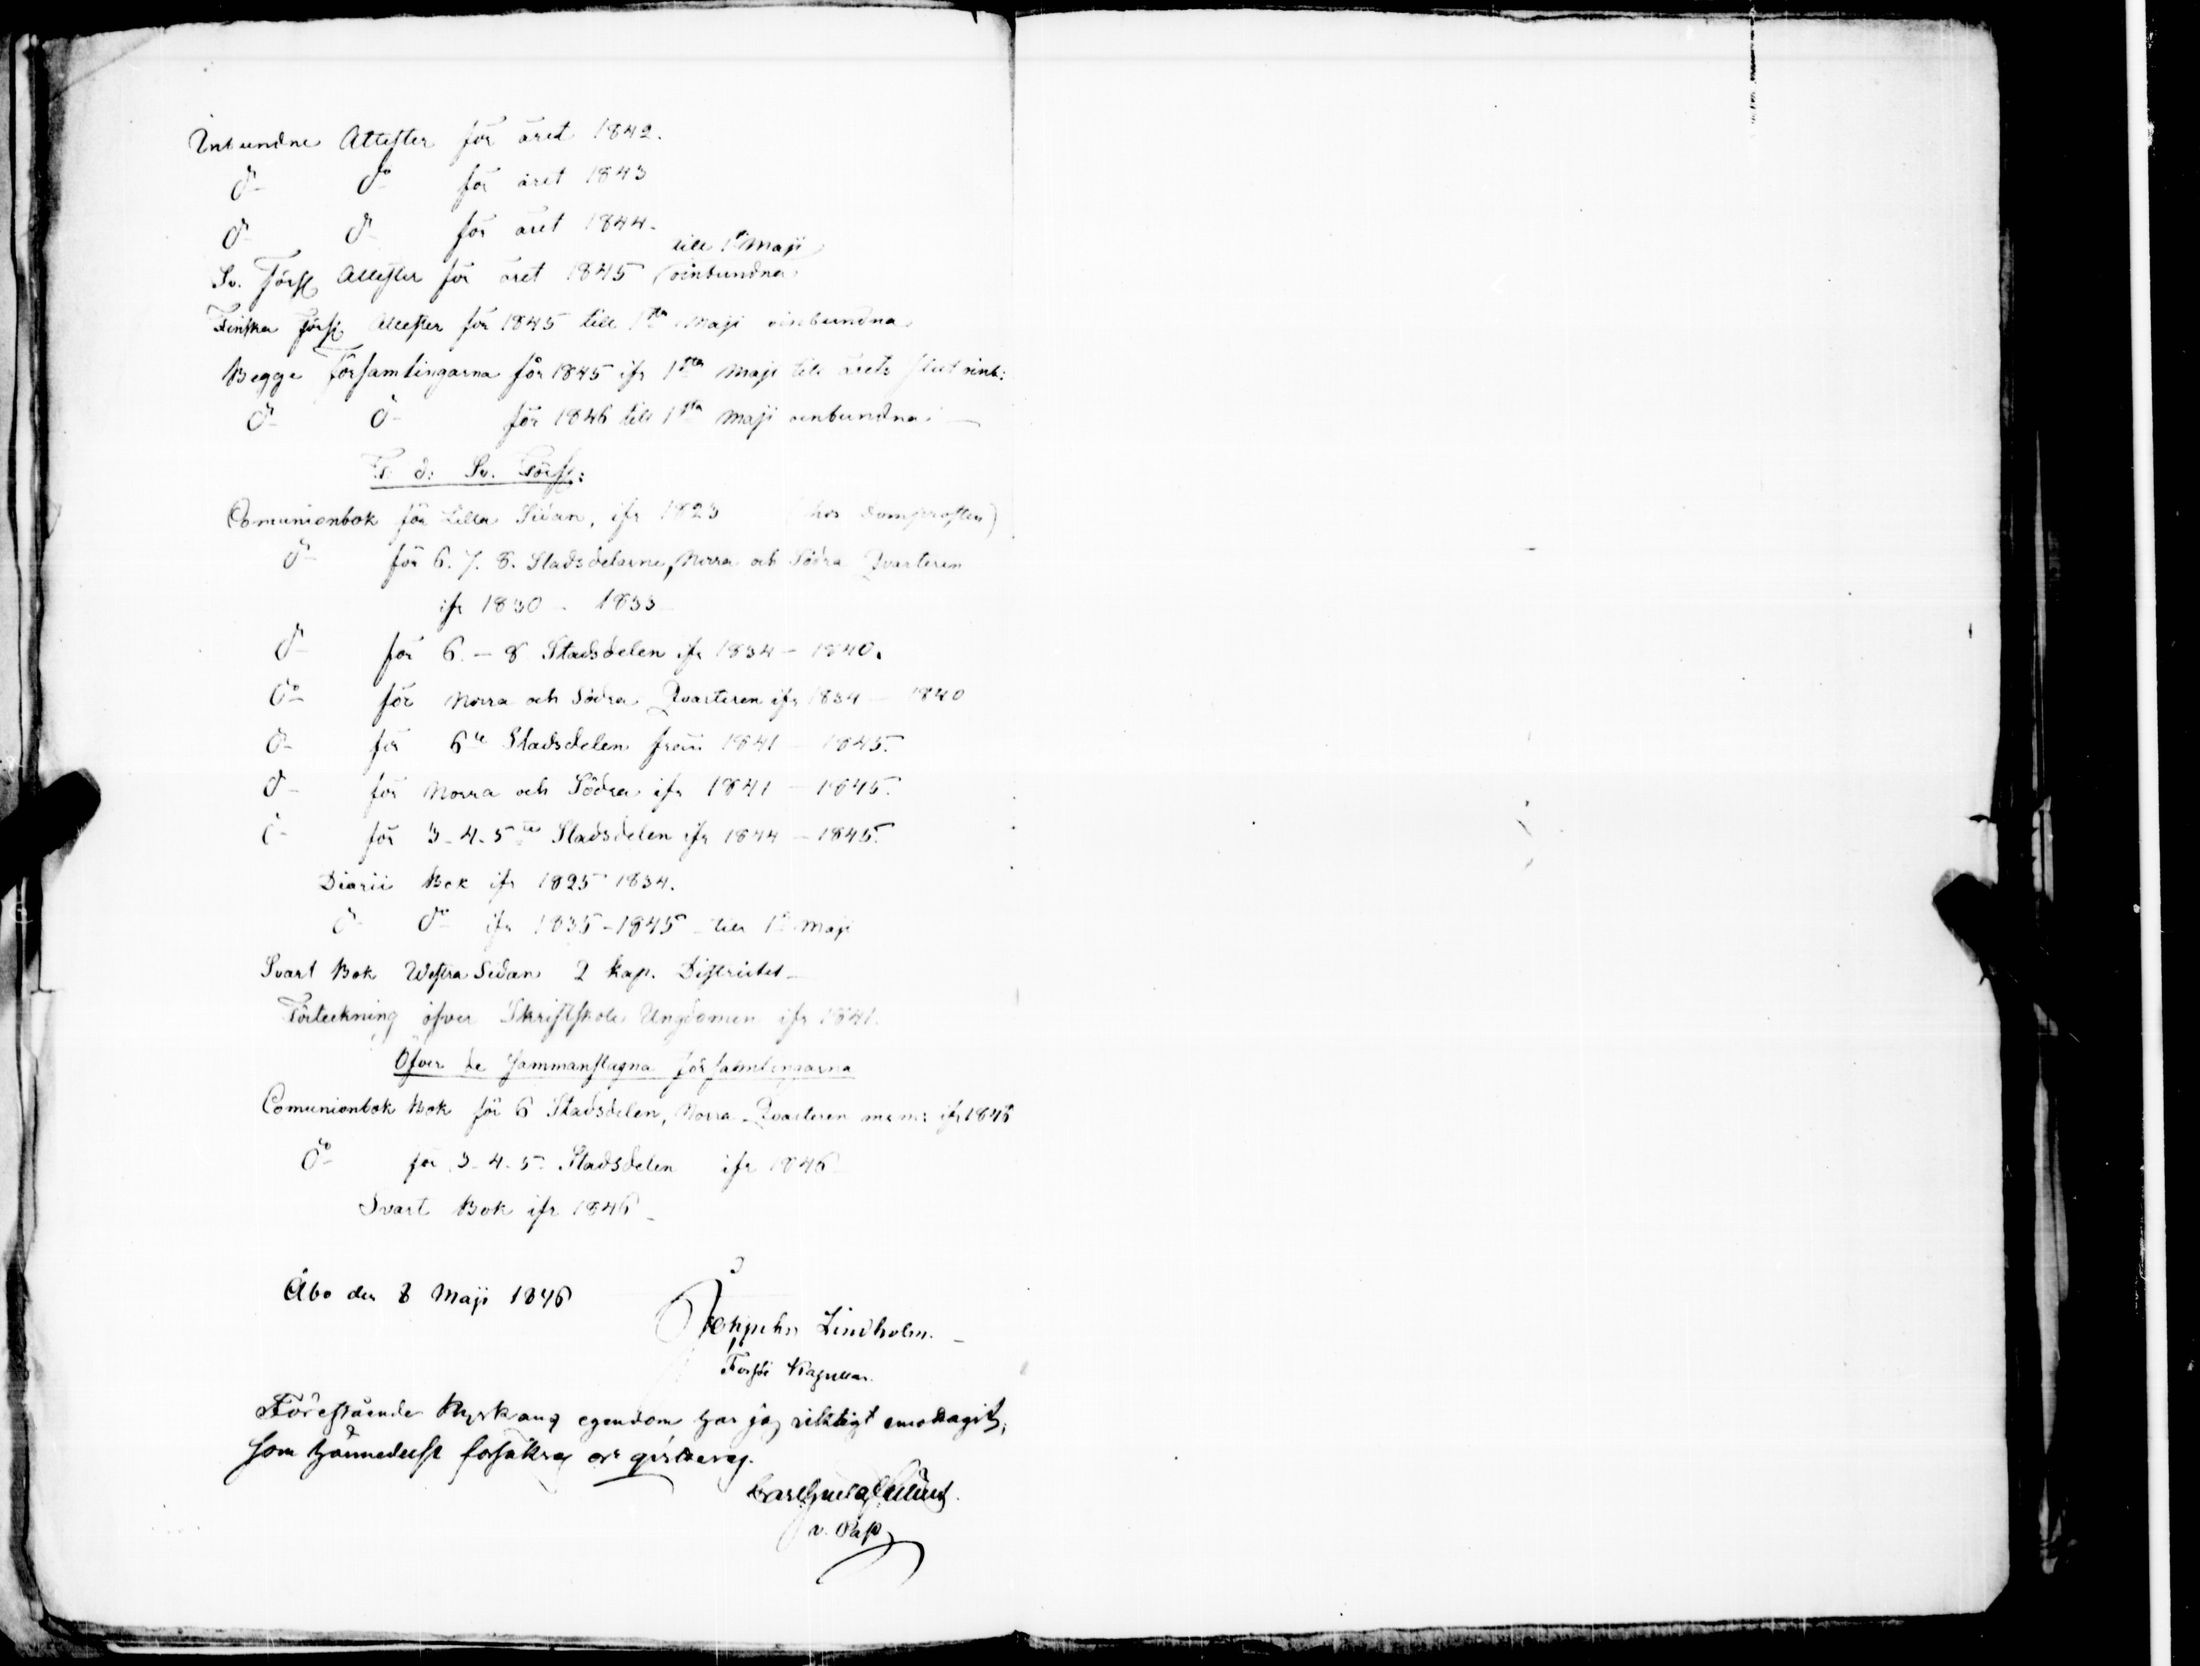 Inbundne Attester för året 1842.
do do för året 1843
do do för året 1844.
till 1sta Maji
Sv. Förs: Attester för året 1845 oinbundna
Finska Förs: Attester för 1845 till 1sta Maji oinbundna
Begge Församlingarna för 1845 ifr 1sta Maji till årets slut oinb:
do do för 1846 till 1sta Maji oinbundna
F. d. Sv. Förs:
Comunionbok för Lilla Sidan, ifr 1823 (hos Domprosten)
do för 6. 7. 8. Stadsdelarne, Norra och Södra Qvarteren
ifr 1830 - 1833
do för 6. - 8 Stadsdelen ifr 1834 - 1840.
do för Norra och Södra Qvarteren ifr 1834 - 1840
do för 6te Stadsdelen från 1841 - 1845.
do för Norra och Södra ifr 1841 - 1845.
do för 3. 4. 5te Stadsdelen ifr 1844 - 1845.
Diarii Bok ifr 1825 1834.
do do ifr 1835 - 1845 till 1sta Maji
Svart Bok Westra Sidan 2 kap. Districtet
Förteckning öfver Skriftskole Ungdomen ifr 1841.
Öfver de sammanslagna församlingarna
Comunionbok Bok för 6 Stadsdelen, Norra Qvarteren m:m: ifr 1846
do för 3. 4. 5. Stadsdelen ifr 1846
Svart Bok ifr 1846
Åbo den 8 Maji 1846
Lindholm.
Förestående Kyrkans egendom har jag riktigt emottagit,
som härmedelst försäkras och qvitteras.
Carl Gustaf
v. Past